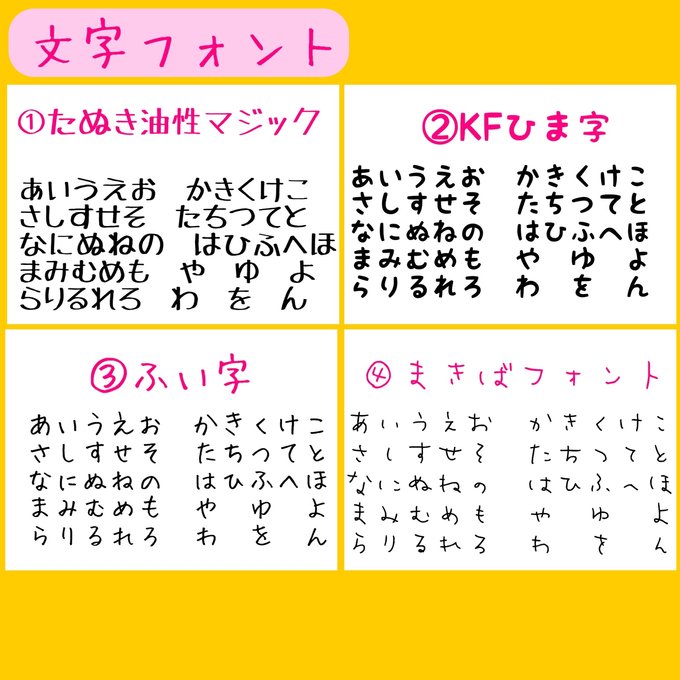 文字フォント
①たぬき油性マジック
あいうえお　かきくけこ
さしすせそ　たちつてと
なにぬねの　はひふへほ
まみむめも　や　ゆ　よ
らりるれろ　わ　を　ん
②KFひま字
あいうえお　かきくけこ
さしすせそ　たちつてと
なにぬねの　はひふへほ
まみむめも　や　ゆ　よ
らりるれろ　わ　を　ん
③ふい字
あいうえお　かきくけこ
さしすせそ　たちつてと
なにぬねの　はひふへほ
まみむめも　や　ゆ　よ
らりるれろ　わ　を　ん
④まきばフォント
あいうえお　かきくけこ
さしすせそ　たちつてと
なにぬねの　はひふへほ
まみむめも　や　ゆ　よ
らりるれろ　わ　を　ん